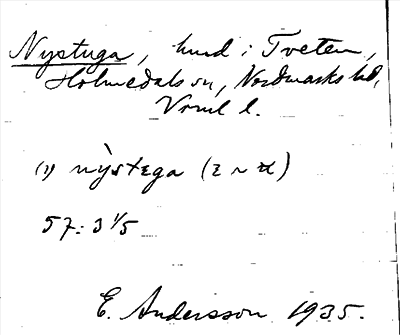 Nystuga, hmd i Tveten,
Holmedals sn, Nordmarks hd,
Vrml l.
(1) nỳstega (ε ~ æ)
57: 3 1/5
E. Andersson 1935.